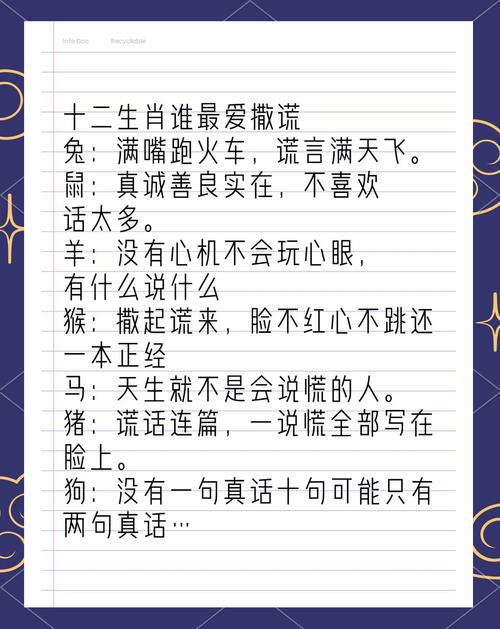 Info Doc. Recyclable
十二生肖谁最爱撒谎
兔：满嘴跑火车，谎言满天飞。
鼠：真诚善良实在，不喜欢
话太多。
羊：没有心机不会玩心眼，
有什么说什么
猴：撒起谎来，脸不红心不跳还
一本正经
马：天生就不是会说慌的人。
猪：谎话连篇，一说慌全部写在
脸上。
狗：没有一句真话十句可能只有
两句真话…